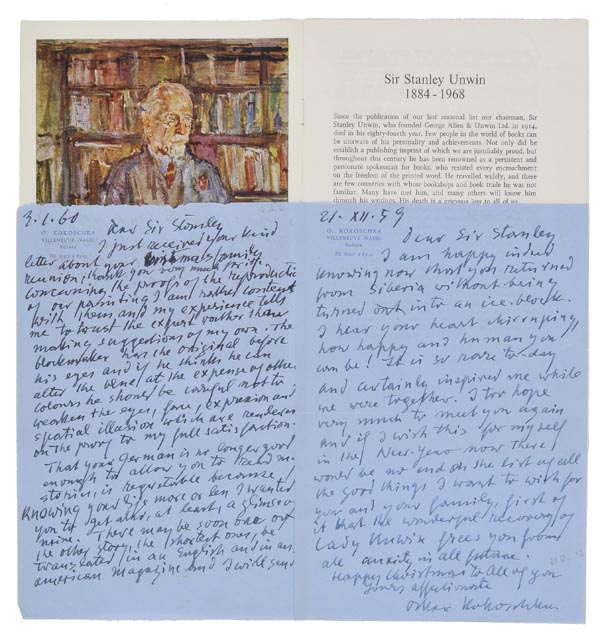 Sir Stanley Unwin
1884 - 1968
Since the publication of our last seasonal list our chairman, Sir
Stanley Unwin, who founded George Allen & Unwin Ltd. in 1914,
died in his eighty-fourth year. Few people in the world of books can
be unaware of his personality and achievements. Not only did he
establish a publishing imprint of which we are justifiably proud, but
throughout this century he has been renowned as a persistent and
passionate spokesman for books, who resisted every encroachment
on the freedom of the printed word. He travelled widely, and there
are few countries with whose bookshops and book trade he was not
familiar. Many have met him, and many others will know him
through his writings. His death is a grievous loss to all of us.
3.1.60
O. KOKOSCHKA
VILLENEUVE (VAUD)
Dear Sir Stanley
I just received your kind
letter about your family
reunion, thank you very much for it.
Concerning the proofs of the reproduction
of our painting I am rather content
with them and my experience tells
me to trust the expert rather than
making suggestions of my own. The
blockmaker has the original before
his eyes and if he thinks he can
alter the blue at the expense of other
colours he should be careful not to
weaken the eyes, face, expression and
spatial illusion which are rendered
on the proof to my full satisfaction.
That your German is no longer good
enough to allow you to read my
stories, is regrettable because
knowing your life more or less I wanted
you to get also, at least, a glimpse of
mine. There may be soon one or
the other story, the shortest ones, be
translated in an English and in an
american magazine and I will send
21. XII. 59
O. KOKOSCHKA
VILLENEUVE (VAUD)
Dear Sir Stanley
I am happy indeed
knowing now that you returned
from Siberia without being
turned out into an ice-block.
I hear your heart chirruping,
how happy and human you
can be! It is so rare to day
and certainly inspired me while
we were together. I too hope
very much to meet you again
and if I wish this for myself
in the New-Year now there
would be no end on the list of all
the good things I want to wish for
you and your family, first of
it that the wonderful recovery of
Lady Unwin frees you from
all anxiety in all future.
Happy Christmas to All of you
Yours affectionate
Oskar Kokoschka